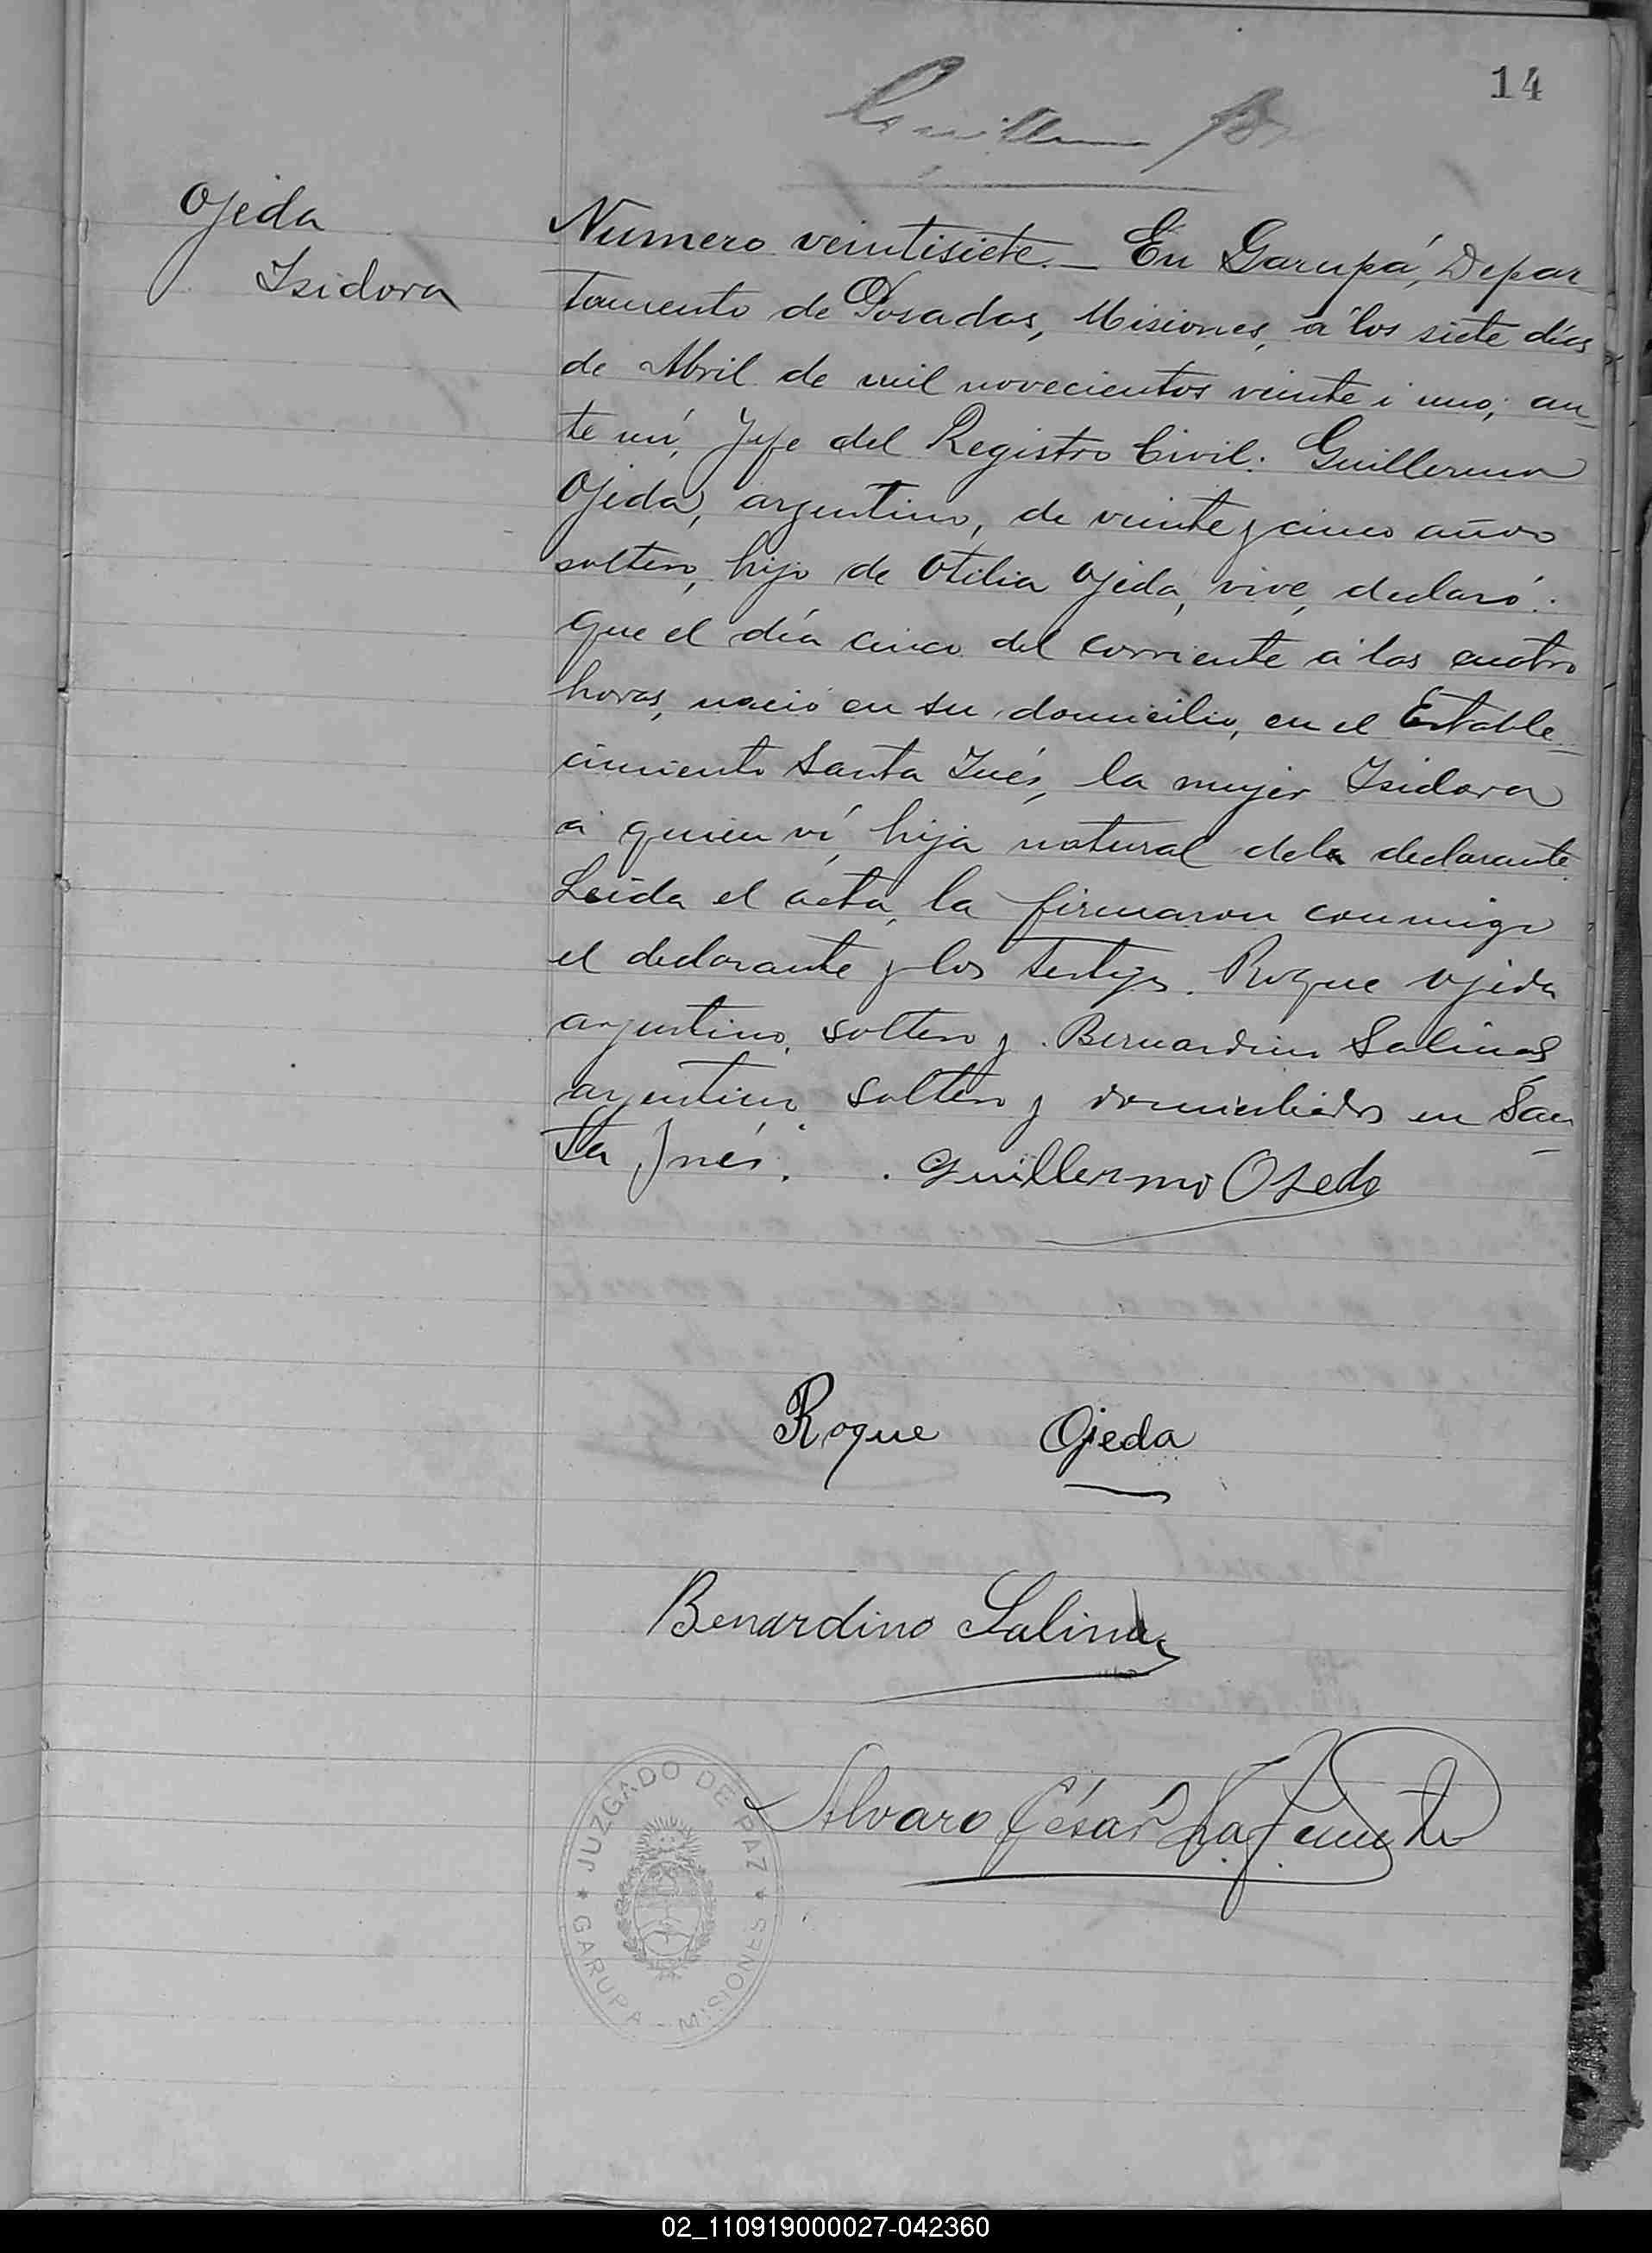 14
Ojeda
Isidora
Numero veintisiete._ En Garupá, Depar
tamento de Posadas, Misiones, a los siete días
de Abril de mil novecientos veinte i uno; an_
te mí, Jefe del Registro Civil: Guillermo
Ojeda, argentino, de veinte y cinco años
soltero, hijo de Otilia Ojeda, vive, declaró:
Que el día cinco del corriente a las cuatro
horas, nació en su domicilio, en el Estable_
cimiento Santa Inés, la mujer Isidora
a quien ví, hija natural del declarante.
Leida el acta, la firmaron conmigo
el declarante y los testigos. Roque Ojeda
argentino, soltero y Bernardino Salinas
argentino soltero y domiciliados en San_
ta Inés. Guillermo Ojeda
Roque Ojeda
Benardino Salinas
Alvaro César Lafuente
JUZGADO DE PAZ
GARUPA - MISIONES
02_110919000027-042360